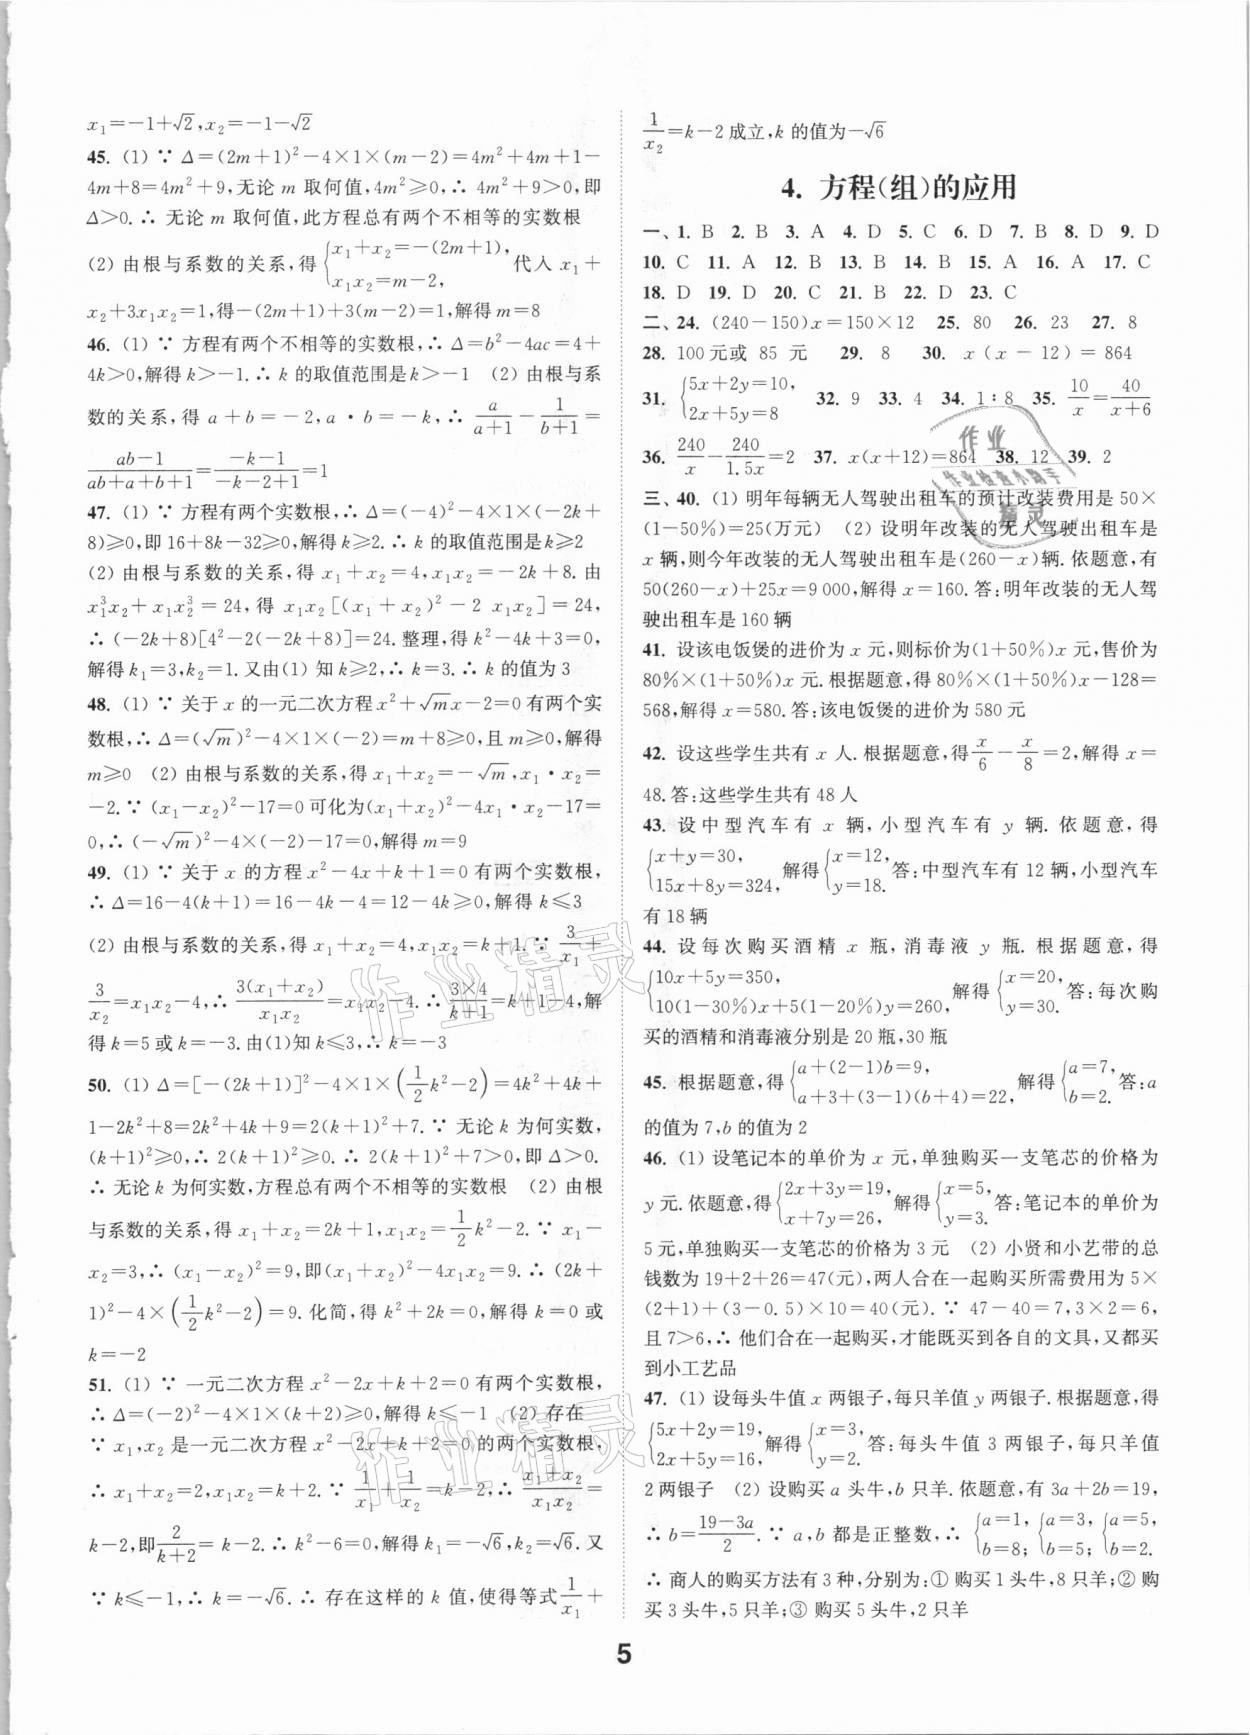 x₁=−1+√2,x₂=−1−√2
45. (1) ∵ Δ=(2m+1)²−4×1×(m−2)=4m²+4m+1−
4m+8=4m²+9,无论 m 取何值,4m²⩾0,∴ 4m²+9>0,即
Δ>0.∴ 无论 m 取何值,此方程总有两个不相等的实数根
(2) 由根与系数的关系,得{x₁+x₂=−(2m+1), x₁x₂=m−2, 代入 x₁+
x₂+3x₁x₂=1,得−(2m+1)+3(m−2)=1,解得 m=8
46. (1) ∵ 方程有两个不相等的实数根,∴ Δ=b²−4ac=4+
4k>0,解得 k>−1.∴ k 的取值范围是 k>−1 (2) 由根与系
数的关系,得 a+b=−2,a·b=−k,∴ a/(a+1)−1/(b+1)=
(ab−1)/(ab+a+b+1)=(−k−1)/(−k−2+1)=1
47. (1) ∵ 方程有两个实数根,∴ Δ=(−4)²−4×1×(−2k+
8)⩾0,即 16+8k−32⩾0,解得 k⩾2.∴ k 的取值范围是 k⩾2
(2) 由根与系数的关系,得 x₁+x₂=4,x₁x₂=−2k+8.由
x₁³x₂+x₁x₂³=24,得 x₁x₂[(x₁+x₂)²−2 x₁x₂]=24,
∴ (−2k+8)[4²−2(−2k+8)]=24.整理,得 k²−4k+3=0,
解得 k₁=3,k₂=1.又由(1) 知 k⩾2,∴ k=3.∴ k 的值为 3
48. (1) ∵ 关于 x 的一元二次方程 x²+√m x−2=0 有两个实
数根,∴ Δ=(√m)²−4×1×(−2)=m+8⩾0,且 m⩾0,解得
m⩾0 (2) 由根与系数的关系,得 x₁+x₂=−√m,x₁·x₂=
−2.∵ (x₁−x₂)²−17=0 可化为(x₁+x₂)²−4x₁·x₂−17=
0,∴ (−√m)²−4×(−2)−17=0,解得 m=9
49. (1) ∵ 关于 x 的方程 x²−4x+k+1=0 有两个实数根,
∴ Δ=16−4(k+1)=16−4k−4=12−4k⩾0,解得 k⩽3
(2) 由根与系数的关系,得 x₁+x₂=4,x₁x₂=k+1.∵ 3/x₁+
3/x₂=x₁x₂−4,∴ 3(x₁+x₂)/(x₁x₂)=x₁x₂−4.∴ (3×4)/(k+1)=k+1−4,解
得 k=5 或 k=−3.由(1)知 k⩽3,∴ k=−3
50. (1) Δ=[−(2k+1)]²−4×1×(1/2k²−2)=4k²+4k+
1−2k²+8=2k²+4k+9=2(k+1)²+7.∵ 无论 k 为何实数,
(k+1)²⩾0,∴ 2(k+1)²⩾0.∴ 2(k+1)²+7>0,即 Δ>0.
∴ 无论 k 为何实数,方程总有两个不相等的实数根 (2) 由根
与系数的关系,得 x₁+x₂=2k+1,x₁x₂=1/2k²−2.∵ x₁−
x₂=3,∴ (x₁−x₂)²=9,即(x₁+x₂)²−4x₁x₂=9.∴ (2k+
1)²−4×(1/2k²−2)=9.化简,得 k²+2k=0,解得 k=0 或
k=−2
51. (1) ∵ 一元二次方程 x²−2x+k+2=0 有两个实数根,
∴ Δ=(−2)²−4×1×(k+2)⩾0,解得 k⩽−1 (2) 存在
∵ x₁,x₂ 是一元二次方程 x²−2x+k+2=0 的两个实数根,
∴ x₁+x₂=2,x₁x₂=k+2.∵ 1/x₁+1/x₂=k−2,∴ (x₁+x₂)/(x₁x₂)=
k−2,即2/(k+2)=k−2.∴ k²−6=0,解得 k₁=−√6,k₂=√6.又
∵ k⩽−1,∴ k=−√6.∴ 存在这样的 k 值,使得等式1/x₁+
1/x₂=k−2 成立,k 的值为−√6
4. 方程(组)的应用
一、1. B 2. B 3. A 4. D 5. C 6. D 7. B 8. D 9. D
10. C 11. A 12. B 13. B 14. B 15. A 16. A 17. C
18. D 19. D 20. C 21. B 22. D 23. C
二、24. (240−150)x=150×12 25. 80 26. 23 27. 8
28. 100 元或 85 元 29. 8 30. x(x−12)=864
31. {5x+2y=10, 2x+5y=8 32. 9 33. 4 34. 1∶8 35. 10/x=40/(x+6)
36. 240/x−240/1.5x=2 37. x(x+12)=864 38. 12 39. 2
三、40. (1) 明年每辆无人驾驶出租车的预计改装费用是 50×
(1−50%)=25(万元) (2) 设明年改装的无人驾驶出租车是
x 辆,则今年改装的无人驾驶出租车是(260−x)辆.依题意,有
50(260−x)+25x=9 000,解得 x=160.答:明年改装的无人驾
驶出租车是 160 辆
41. 设该电饭煲的进价为 x 元,则标价为(1+50%)x 元,售价为
80%×(1+50%)x 元.根据题意,得 80%×(1+50%)x−128=
568,解得 x=580.答:该电饭煲的进价为 580 元
42. 设这些学生共有 x 人.根据题意,得x/6−x/8=2,解得 x=
48.答:这些学生共有 48 人
43. 设中型汽车有 x 辆,小型汽车有 y 辆.依题意,得
{x+y=30, 15x+8y=324, 解得{x=12, y=18. 答:中型汽车有 12 辆,小型汽车
有 18 辆
44. 设每次购买酒精 x 瓶,消毒液 y 瓶.根据题意,得
{10x+5y=350, 10(1−30%)x+5(1−20%)y=260, 解得{x=20, y=30. 答:每次购
买的酒精和消毒液分别是 20 瓶,30 瓶
45. 根据题意,得{a+(2−1)b=9, a+3+(3−1)(b+4)=22, 解得{a=7, b=2. 答:a
的值为 7,b 的值为 2
46. (1) 设笔记本的单价为 x 元,单独购买一支笔芯的价格为
y 元.依题意,得{2x+3y=19, x+7y=26, 解得{x=5, y=3. 答:笔记本的单价为
5 元,单独购买一支笔芯的价格为 3 元 (2) 小贤和小艺带的总
钱数为 19+2+26=47(元),两人合在一起购买所需费用为 5×
(2+1)+(3−0.5)×10=40(元).∵ 47−40=7,3×2=6,
且 7>6,∴ 他们合在一起购买,才能既买到各自的文具,又都买
到小工艺品
47. (1) 设每头牛值 x 两银子,每只羊值 y 两银子.根据题意,得
{5x+2y=19, 2x+5y=16, 解得{x=3, y=2. 答:每头牛值 3 两银子,每只羊值
2 两银子 (2) 设购买 a 头牛,b 只羊.依题意,有 3a+2b=19,
∴ b=(19−3a)/2.∵ a,b 都是正整数,∴ {a=1, b=8; {a=3, b=5; {a=5, b=2.
∴ 商人的购买方法有 3 种,分别为:① 购买 1 头牛,8 只羊;② 购
买 3 头牛,5 只羊;③ 购买 5 头牛,2 只羊
5
作业
作业检查小助手
精灵
作业精灵
作业精灵